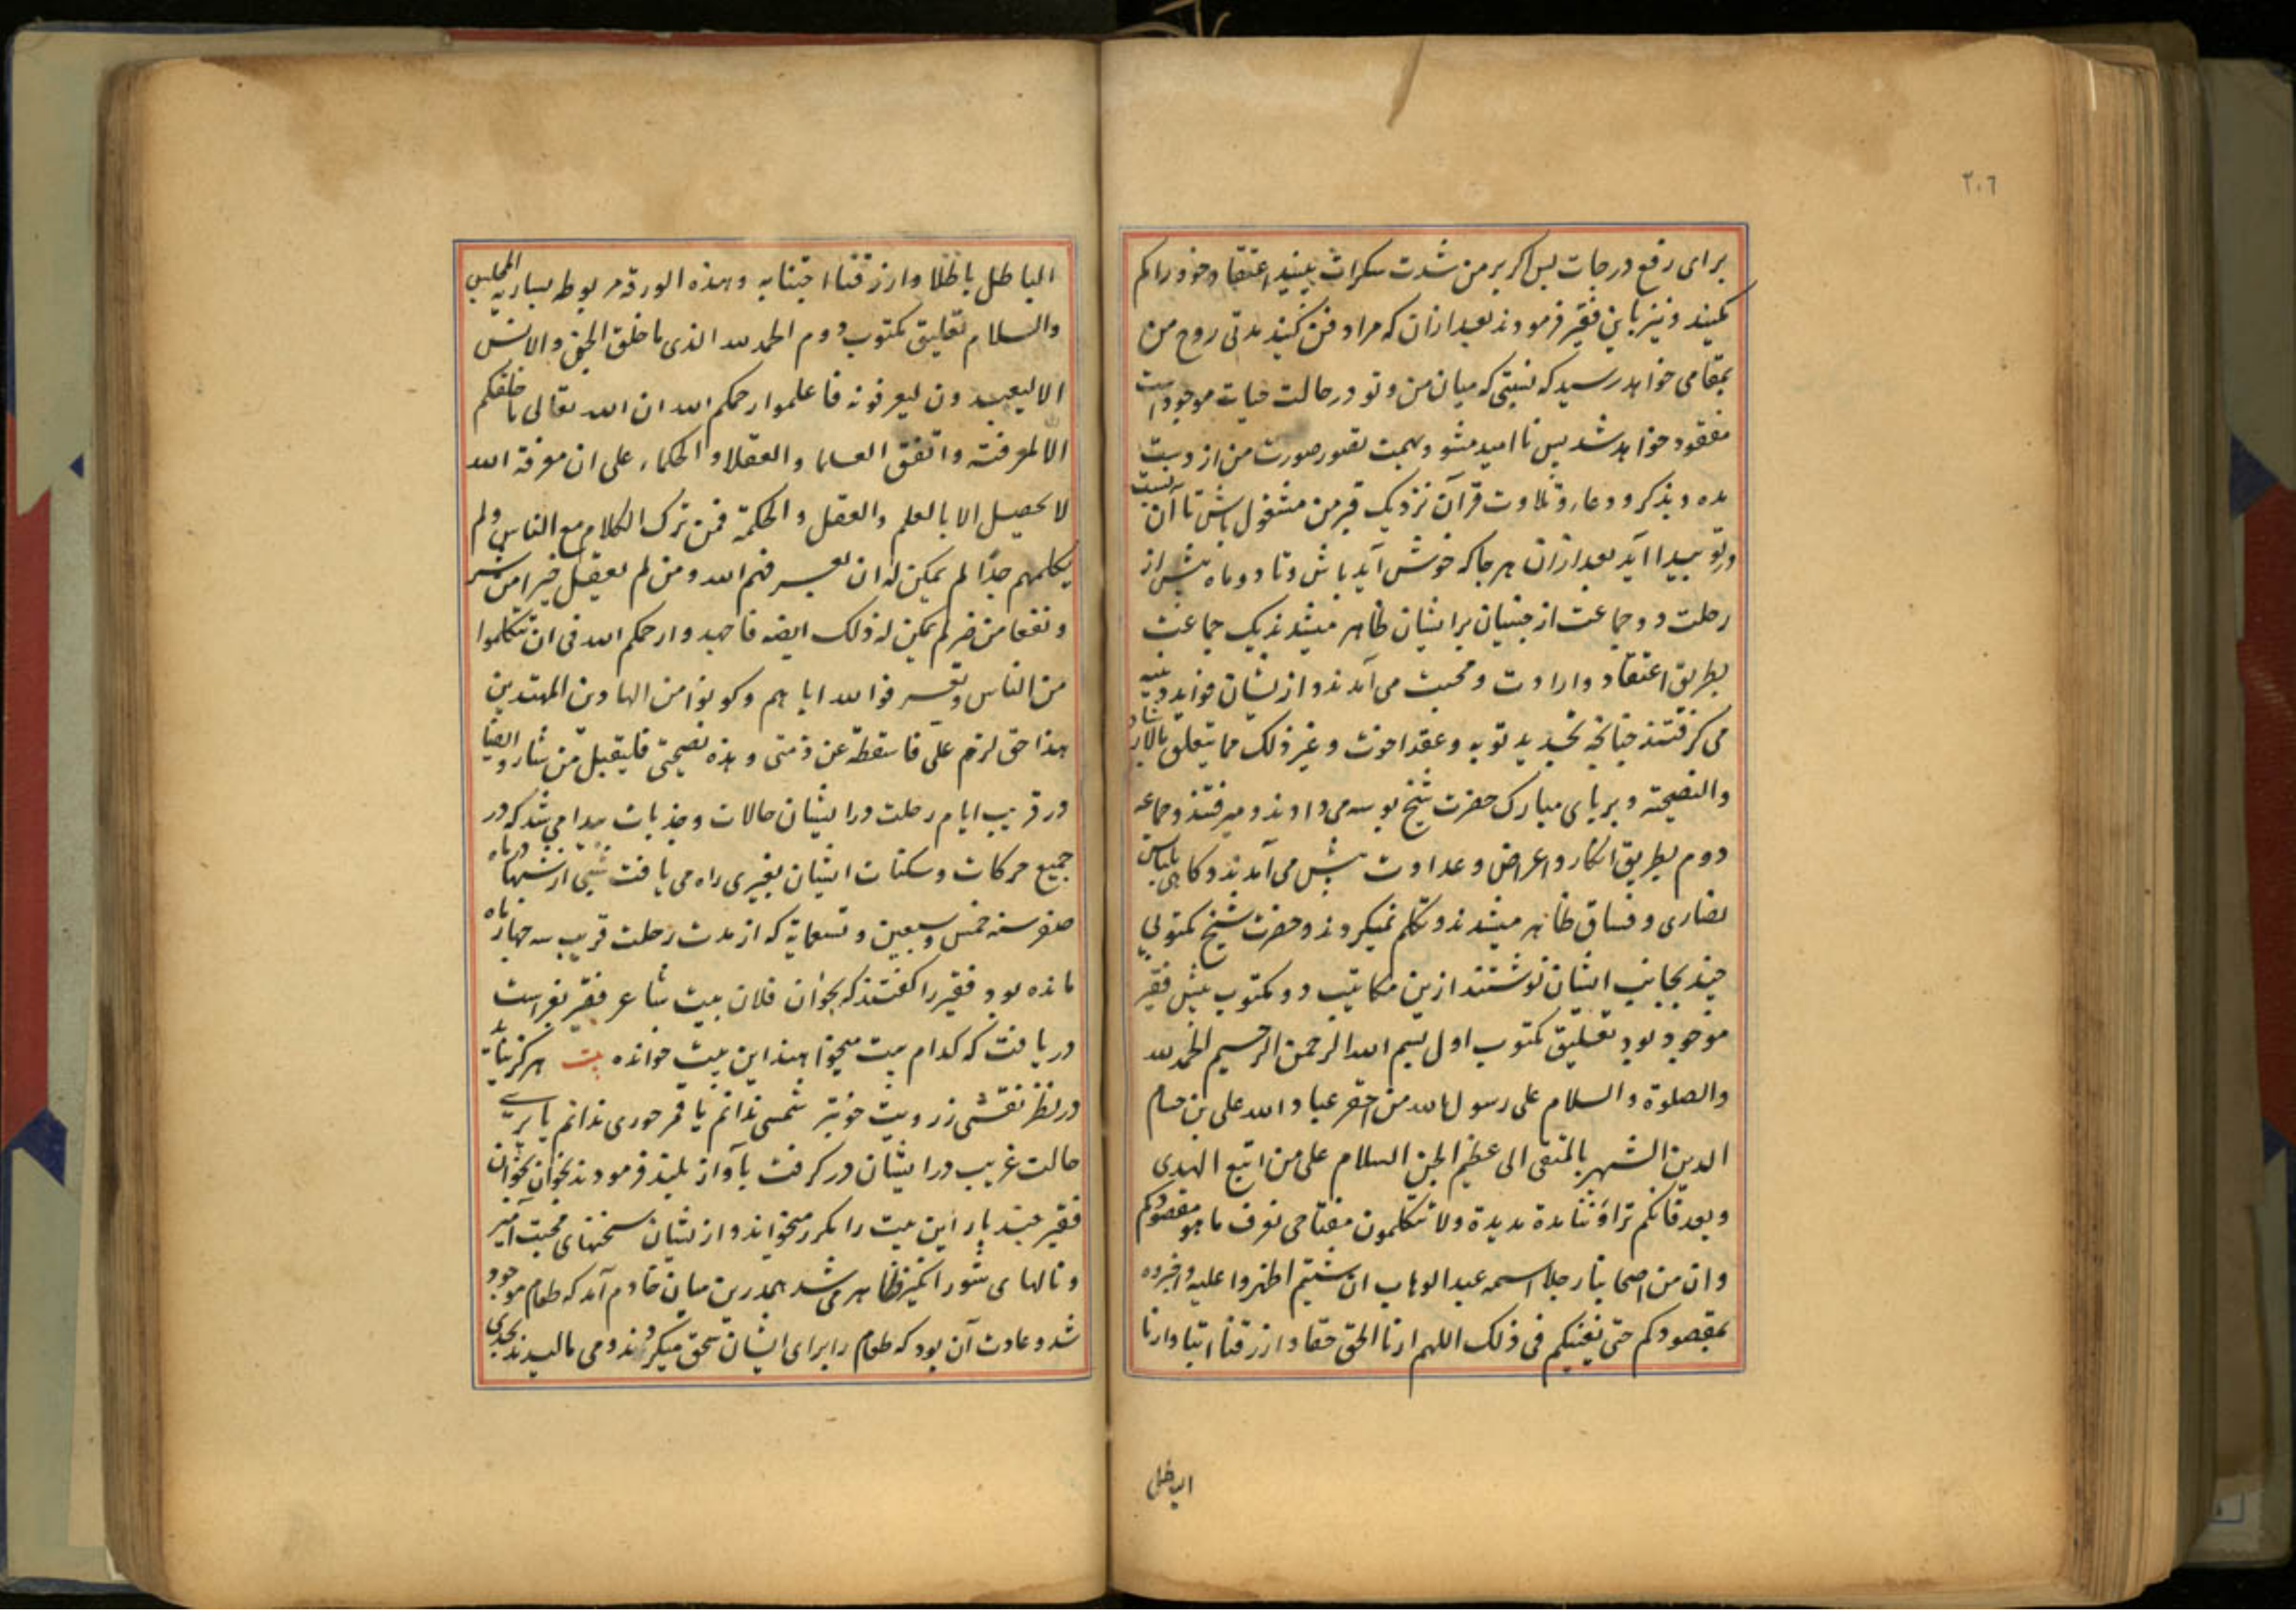 ٢٠٦
برای رفع درجات پس اکر بر من شدت سکرات ببیند اعتقاد خود را کم
نکیند و نیز باین فقیر فرمودند بعد ازان که مرا دفن کنید مدتی روح من
بمقامی خواهد رسید که نسبتی که میان من و تو در حالت حیات موجود است
مفقود خواهد شد پس نا امید مشو و بهمت تصور صورت من از دست
مده و بذکر و دعا و تلاوت قرآن نزدیک قبر من مشغول باش تا آن نسبت
در تو پیدا آید بعد ازان هر جا که خوش آید باش و تا دو ماه پیش از
رحلت دو جماعت از جنیان بر ایشان ظاهر میشدند یک جماعت
بطریق اعتقاد و ارادت و محبت می آمدند و از یشان فواید دینیه
می کرفتند چنانچه تجدید توبه و عقد اخوت و غیر ذلک مما یتعلق بالارشاد
والنصیحة و بر پای مبارک حضرت شیخ بوسه می دادند و میرفتند و جماعه
دوم بطریق انکار و اعراض و عداوت پیش می آمدند و کاهی بلباس
نصاری و فساق ظاهر میشدند و تکلم نمیکردند و حضرت شیخ مکتوبی
چند بجانب ایشان نوشتند ازین مکاتیب دو مکتوب پیش فقیر
موجود بود تعلیق مکتوب اول بسم الله الرحمن الرحیم الحمد لله
والصلوة والسلام علی رسول الله من احقر عباد الله علی بن حسام
الدین الشهیر بالمتقی الی عظیم الجن السلام علی من اتبع الهدی
و بعد فانکم تراؤننا مدة مدیدة ولا تتکلمون مفتاحی نعرف ما هو مقصودکم
وان من اصحابنا رجلا اسمه عبد الوهاب ان شئتم اظهروا علیه واخبروه
بمقصودکم حتی نعینکم فی ذلک اللهم ارنا الحق حقا وارزقنا اتباعه وارنا
الباطل
الباطل باطلا وارزقنا اجتنابه وهذه الورقة مربوطه بساریة المجلس
والسلام تعلیق مکتوب دوم الحمد لله الذی ما خلق الجن والانس
الا لیعبدون لیعرفونه فاعلموا رحمکم الله ان الله تعالی ما خلقکم
الا لمعرفته واتفق العلما والعقلا والحکماء علی ان معرفة الله
لا یحصیل الا بالعلم والعقل والحکمة فمن ترک الکلام مع الناس ولم
یکلمهم جدا لم یمکن له ان یعرفهم الله ومن لم یعقل خیرا من شر
ونفعا من ضر لم یمکن له ذلک ایضه فاجهدوا رحمکم الله فی ان تتکلموا
من الناس وتعرفوا الله ایاهم وکونوا من الهادین المهتدین
هذا حق لزم علی فاسقطه عن ذمتی وهذه نصیحتی فلیقبل من شاء وایضا
در قریب ایام رحلت در ایشان حالات و جذبات پیدا می شد که در
جمیع حرکات و سکنات ایشان تغییری راه می یافت شبی از شبهاء در ماه
صفر سنه خمس و سبعین و تسعمایة که از مدت رحلت قریب سه چهار ماه
مانده بود فقیر را کفتند که بخوان فلان بیت شاعر فقیر بفراست
دریافت که کدام بیت میخواهند این بیت خوانده بیت هرکز نیاید
در نظر نقشی ز رویت خوبتر شمسی ندانم یا قمر حوری ندانم یا پری
حالت غریب در ایشان در کرفت بآواز بلند فرمودند بخوان بخوان
فقیر چند بار این بیت را مکرر میخواند و از یشان سخنهای محبت آمیز
و نالهای شور انکیز ظاهر می شد همدرین میان خادم آمد که طعام موجود
شد و عادت آن بود که طعام را برای ایشان سحق میکردند و می مالیدند بحدی